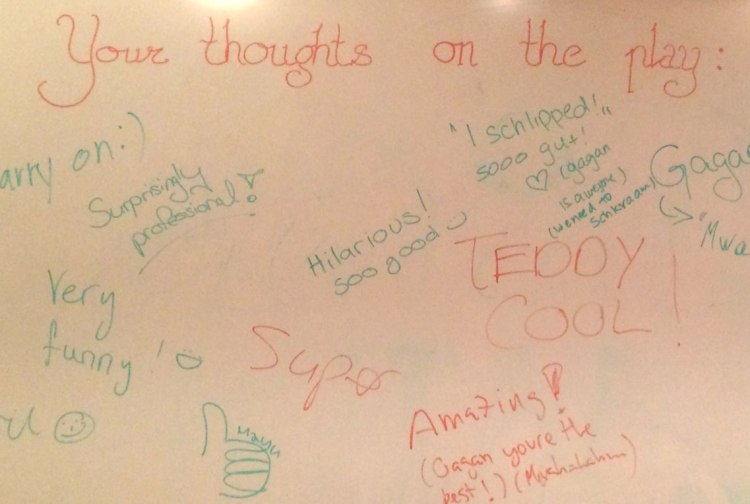 Your thoughts on the play:
arry on:)
Surprisingly
professional!
"I schlipped!"
sooo gut!
♡ (gagan
is awesome)
Gaga
"Mwa
Hilarious!
soo good
TEDDY
COOL!
Very
funny!
Super
Amazing!
(Gagan youre the
best!)